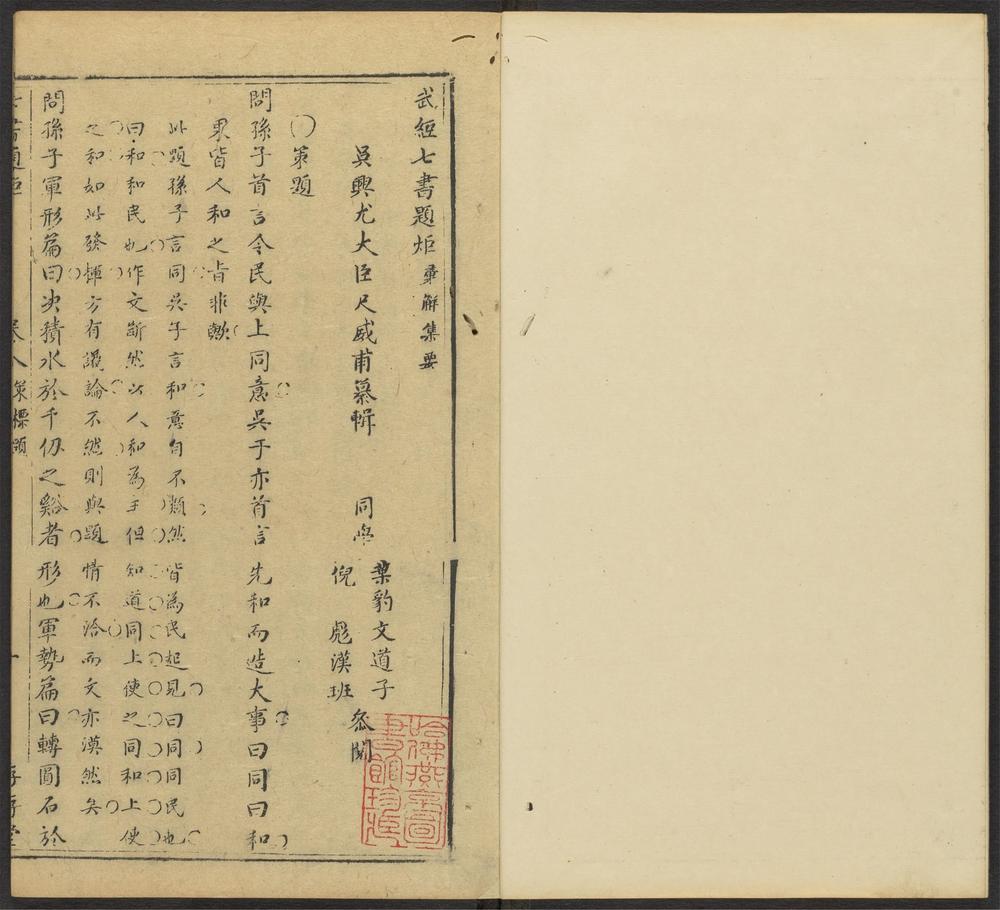 武經七書題炬彙解集要
吳興尤大臣尺威甫纂輯 同學
葉豹文道子
倪 彪漢班
叅閱
哈佛燕京圖書館珍藏
○策題
問孫子首言令民與上同意吳子亦首言先和而造大事曰同曰和
果皆人和之旨非歟
此題孫子言同吳子言和意自不類然皆為民起見曰同同民也
曰和和民也作文斷然以人和為主但知道同上使之同和上使
之和如此發揮方有議論不然則與題情不洽而文亦漠然矣
問孫子軍形篇曰决積水於千仞之谿者形也軍勢篇曰轉圓石於
七書題炬 卷八策標題 一